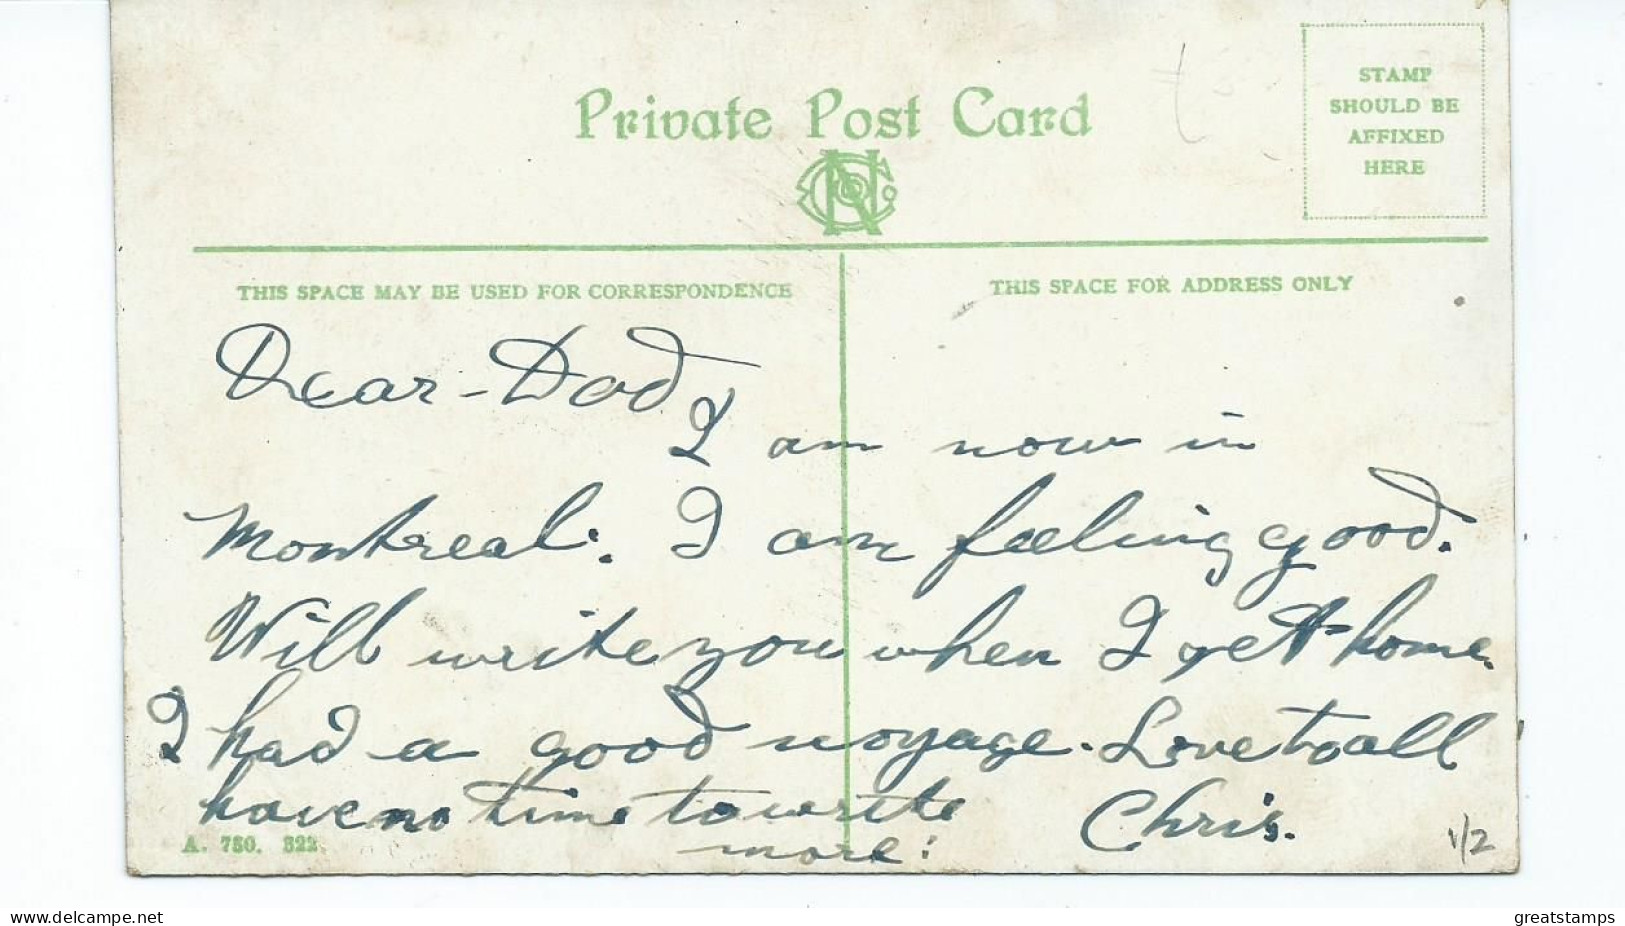 Private Post Card
STAMP
SHOULD BE
AFFIXED
HERE
THIS SPACE MAY BE USED FOR CORRESPONDENCE
THIS SPACE FOR ADDRESS ONLY
Dear - Dod
I am now in
Montreal. I am feeling good.
Will write you when I get home.
I had a good voyage. Love to all
have no time to write Chris.
more.
A. 750. 322.
1/2
delcampe.net
greatstamps